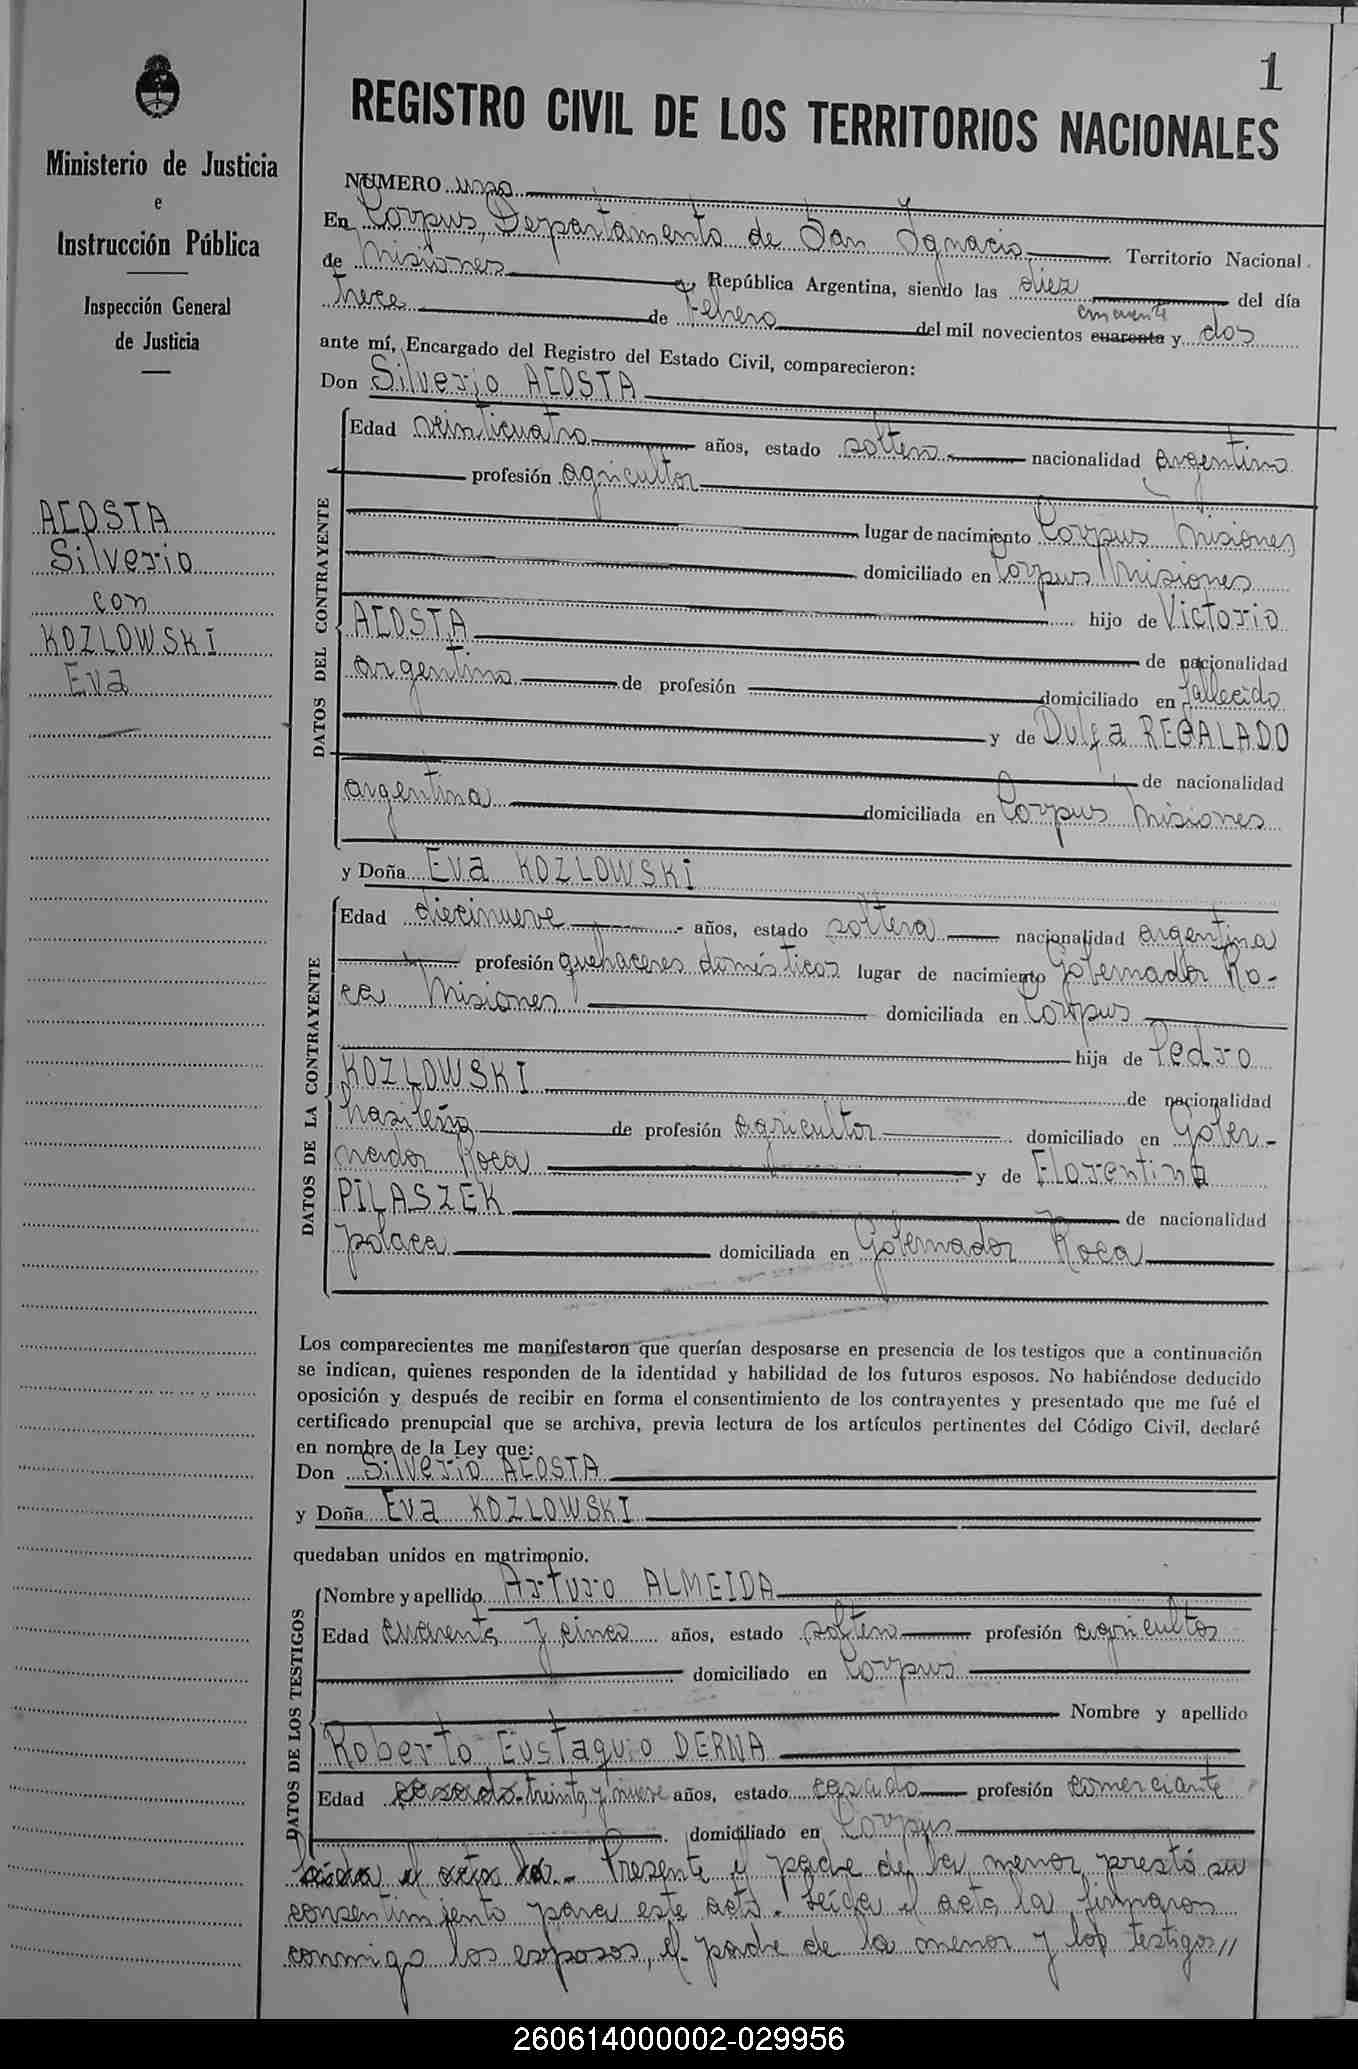 1
Ministerio de Justicia
e
Instrucción Pública
Inspección General
de Justicia
ACOSTA
Silverio
con
KOZLOWSKI
Eva
REGISTRO CIVIL DE LOS TERRITORIOS NACIONALES
NUMERO uno
En Corpus, Departamento de San Ignacio Territorio Nacional
de Misiones República Argentina, siendo las diez del día
trece de Febrero del mil novecientos cuarenta cincuenta y dos
ante mí, Encargado del Registro del Estado Civil, comparecieron:
Don Silverio ACOSTA
DATOS DEL CONTRAYENTE
Edad veinticuatro años, estado soltero nacionalidad argentino
profesión agricultor
lugar de nacimiento Corpus Misiones
domiciliado en Corpus Misiones
hijo de Victorio
ACOSTA de nacionalidad
argentino de profesión domiciliado en fallecido
y de Dulfa REGALADO
de nacionalidad
argentina domiciliada en Corpus Misiones
y Doña Eva KOZLOWSKI
DATOS DE LA CONTRAYENTE
Edad diecinueve años, estado soltera nacionalidad argentina
profesión quehaceres domésticos lugar de nacimiento Gobernador Ro-
ca Misiones domiciliada en Corpus
hija de Pedro
KOZLOWSKI de nacionalidad
brasileña de profesión agricultor domiciliado en Gober-
nador Roca y de Florentina
PILASZEK de nacionalidad
polaca domiciliada en Gobernador Roca
Los comparecientes me manifestaron que querían desposarse en presencia de los testigos que a continuación
se indican, quienes responden de la identidad y habilidad de los futuros esposos. No habiéndose deducido
oposición y después de recibir en forma el consentimiento de los contrayentes y presentado que me fué el
certificado prenupcial que se archiva, previa lectura de los artículos pertinentes del Código Civil, declaré
en nombre de la Ley que:
Don Silverio ACOSTA
y Doña Eva KOZLOWSKI
quedaban unidos en matrimonio.
DATOS DE LOS TESTIGOS
Nombre y apellido Arturo ALMEIDA
Edad cuarenta y cinco años, estado soltero profesión agricultor
domiciliado en Corpus
Nombre y apellido
Roberto Eustaquio DERNA
Edad casado treinta y nueve años, estado casado profesión comerciante
domiciliado en Corpus
Leída el acta la.- Presente el padre de la menor prestó su
consentimiento para este acto. Leída el acta la firmaron
conmigo los esposos, el padre de la menor y los testigos//
260614000002-029956